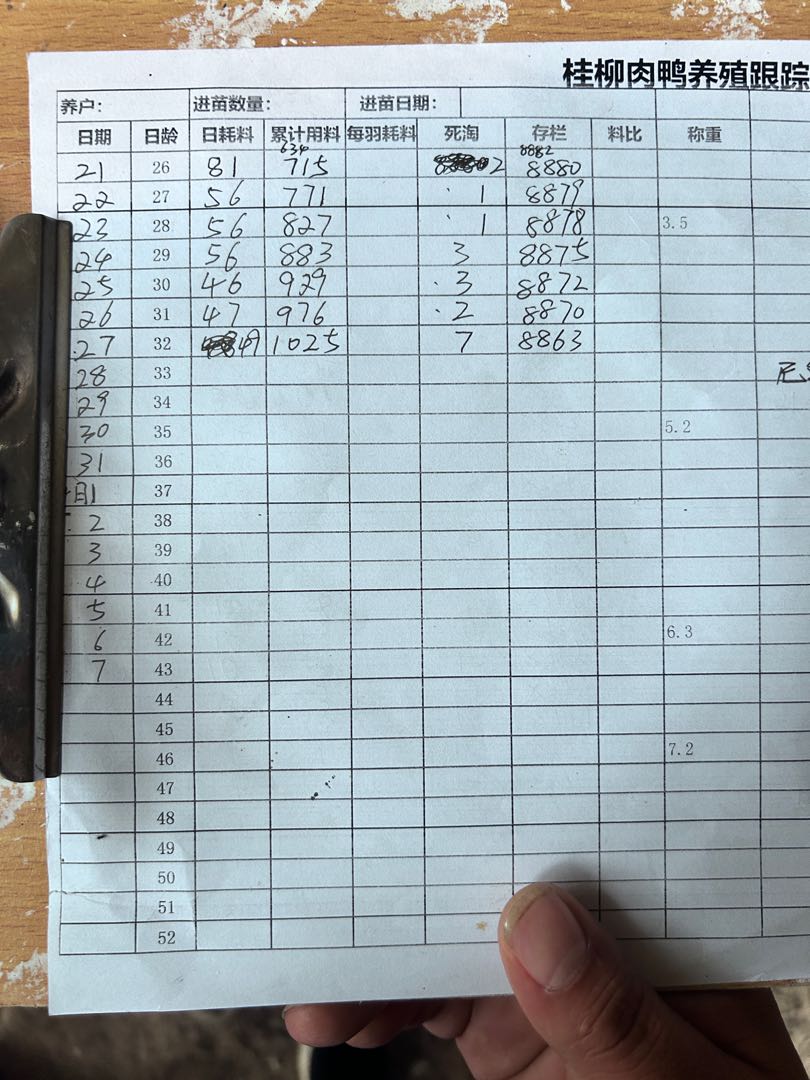 桂柳肉鸭养殖跟踪
养户: 进苗数量: 进苗日期:
日期 日龄 日耗料 累计用料 每羽耗料 死淘 存栏 料比 称重
634 8882
21 26 81 715 2 8880
22 27 56 771 1 8879
23 28 56 827 1 8878 3.5
24 29 56 883 3 8875
25 30 46 929 3 8872
26 31 47 976 2 8870
27 32 49 1025 7 8863
28 33
29 34
30 35 5.2
31 36
月1 37
2 38
3 39
4 40
5 41
6 42 6.3
7 43
44
45
46 7.2
47
48
49
50
51
52